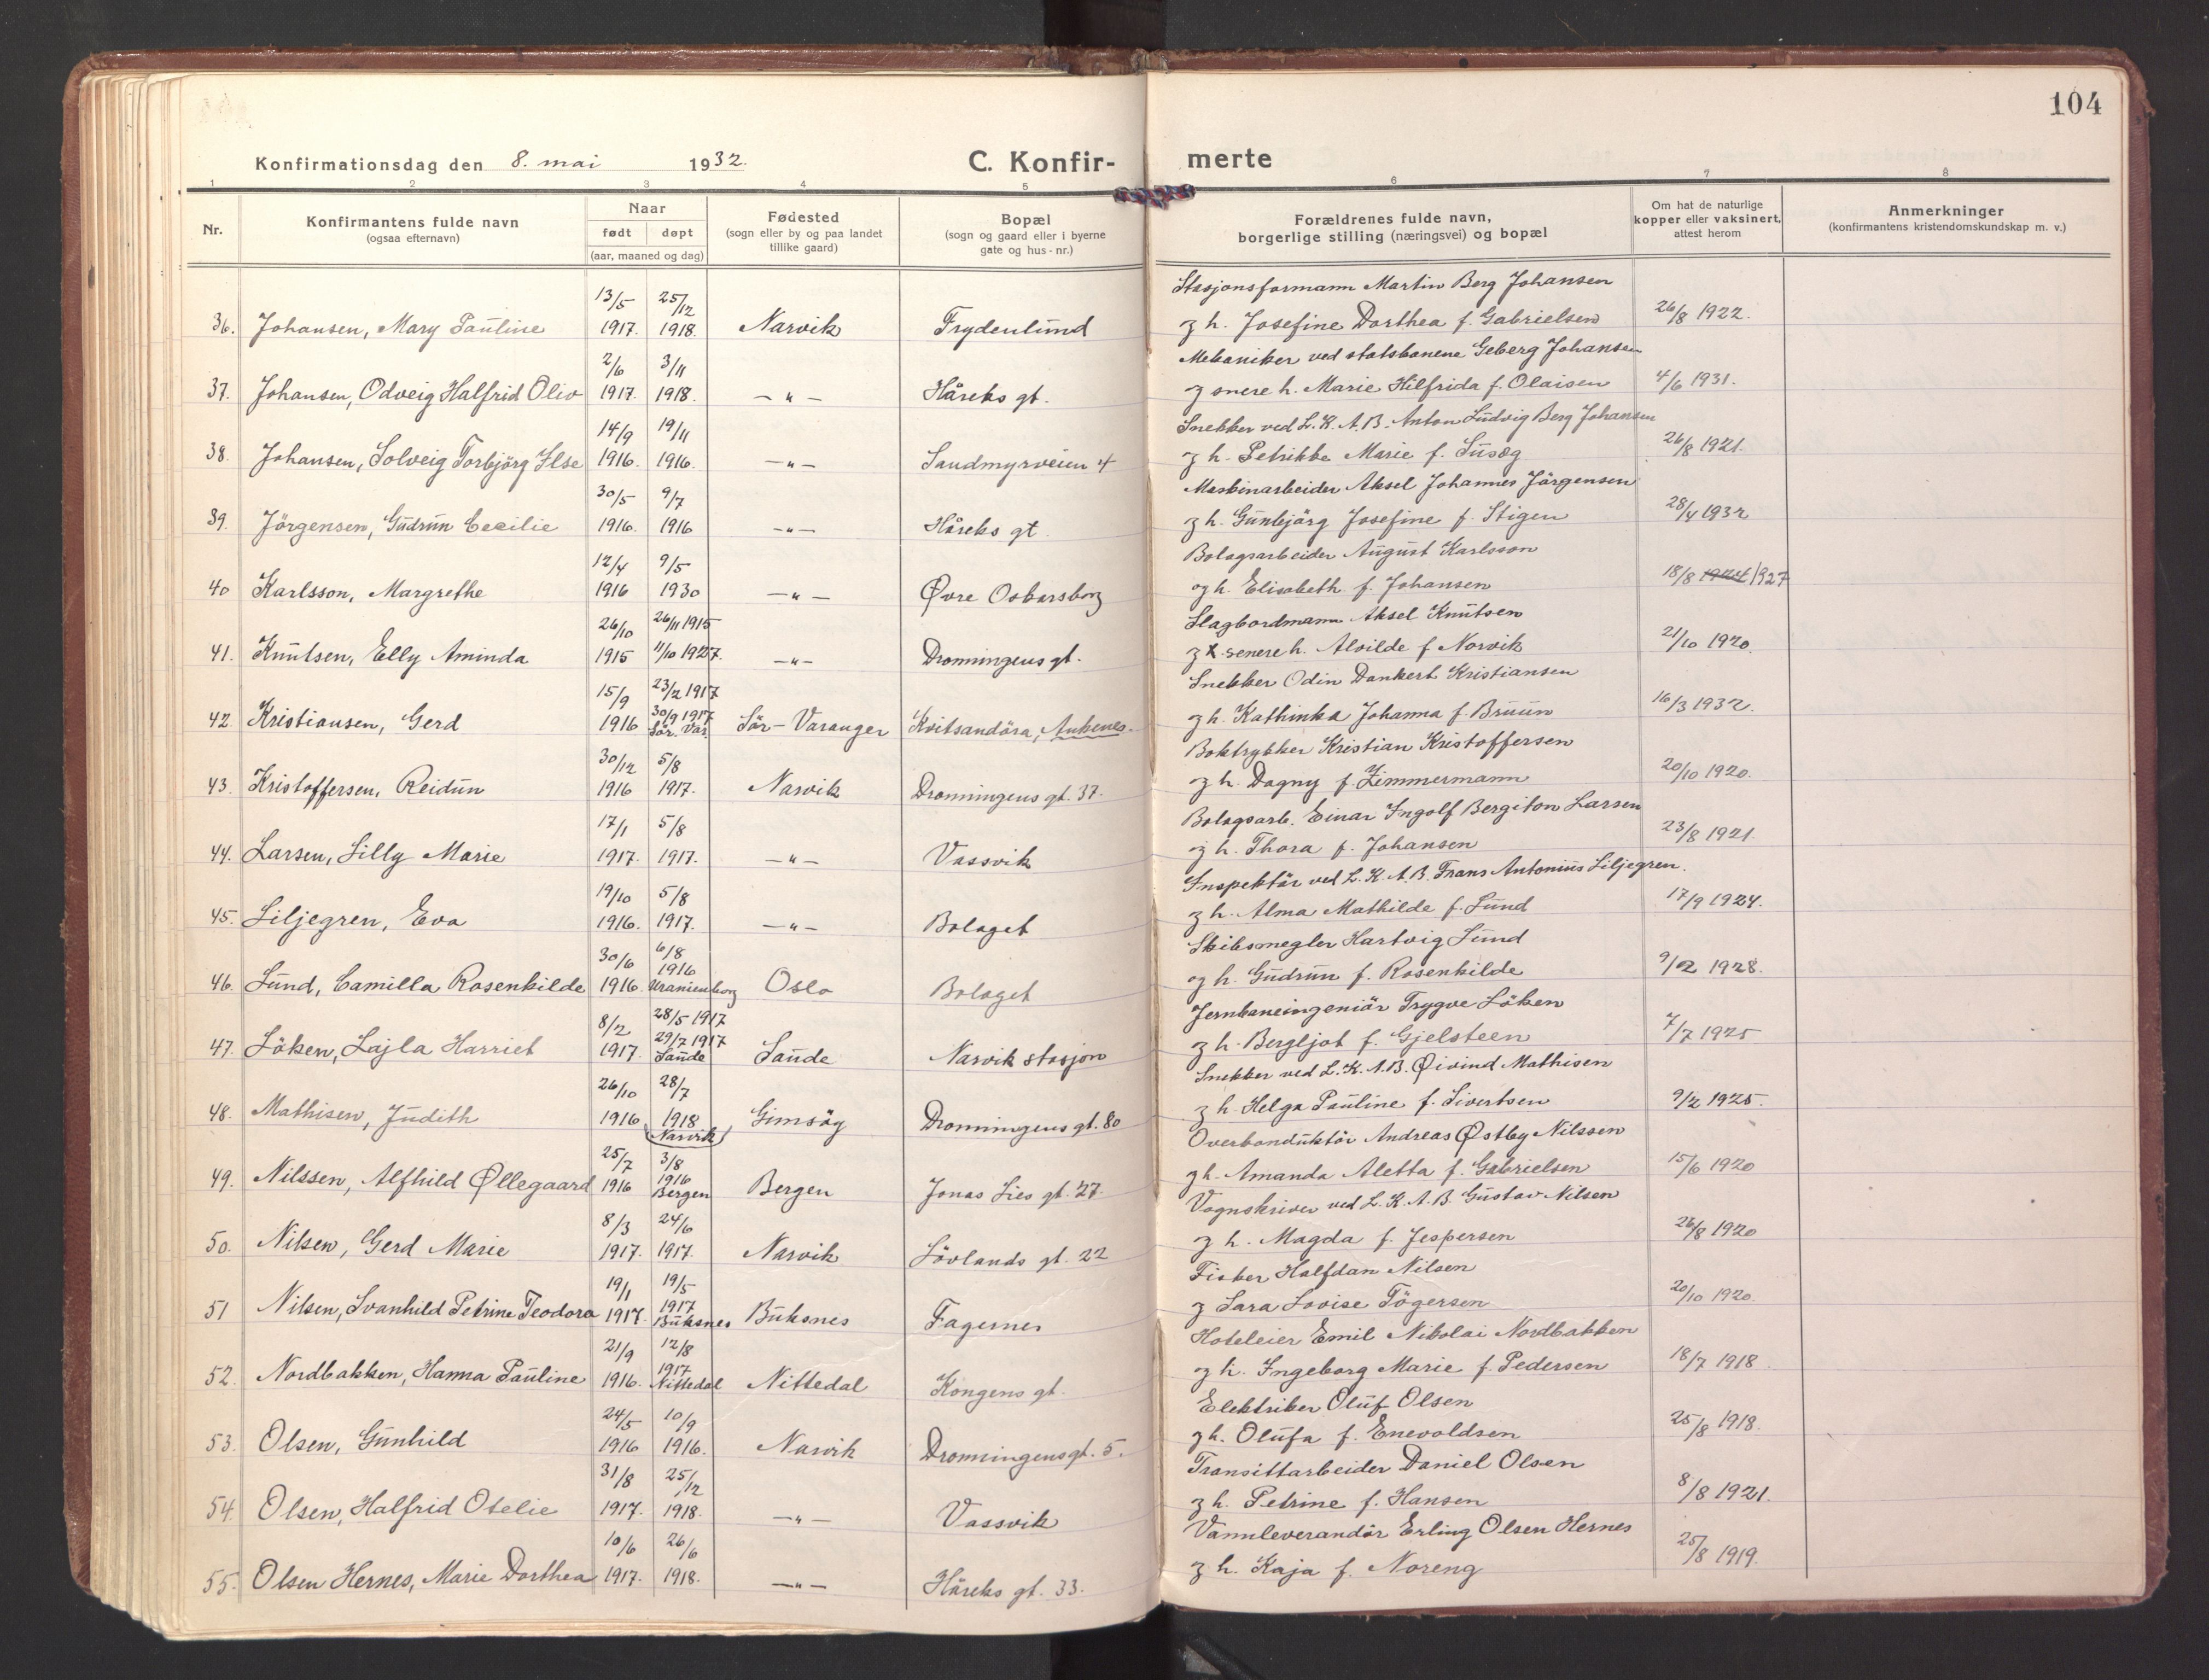 104
Konfirmationsdag den 8. mai 1932.
C. Konfir- merte
1 2 3 4 5 6 7 8
Nr.
Konfirmantens fulde navn
(ogsaa efternavn)
Naar
født døpt
(aar, maaned og dag)
Fødested
(sogn eller by og paa landet
tillike gaard)
Bopæl
(sogn og gaard eller i byerne
gate og hus-nr.)
Forældrenes fulde navn,
borgerlige stilling (næringsvei) og bopæl
Om hat de naturlige
kopper eller vaksinert,
attest herom
Anmerkninger
(konfirmantens kristendomskundskap m. v.)
13/5 25/12 Stasjonsformann Martin Berg Johansen
36. Johansen, Mary Pauline 1917. 1918. Narvik Frydenlund og h. Josefine Dorthea f. Gabrielsen 26/8 1922.
2/6 3/11 Mekaniker ved statsbanene Geberg Johansen
37. Johansen, Odveig Halfrid Oliv 1917. 1918. —"— Håreks gt. og snere h. Marie Hilfrida f. Olaisen 4/6 1931.
14/9 19/11 Snekker ved L.K.A.B. Anton Ludvig Berg Johansen
38. Johansen, Solveig Torbjörg Ilse 1916. 1916. —"— Sandmyrveien 4 og h. Petrikke Marie f. Susæg 26/8 1921.
30/5 9/7 Maskinarbeider Aksel Johannes Jörgensen
39. Jörgensen, Gudrun Cecilie 1916. 1916 —"— Håreks gt. og h. Gunbjörg Josefine f. Stigen 28/4 1932
12/4 9/5 Bolagsarbeider August Karlsson
40 Karlsson, Margrethe 1916 1930 —"— Øvre Oskarsborg og h. Elisabeth f. Johansen 18/8 1924 1927
26/10 26/11 1915 Slagbordmann Aksel Knutsen
41. Knutsen, Elly Aminda 1915 11/10 1927. —"— Dronningens gt. og x senere h. Alvilde f Norvik 21/10 1920.
15/9 23/2 1917 Snekker Odin Dankert Kristiansen
42. Kristiansen, Gerd 1916 30/9 1917 Sör. Var. Sör-Varanger Kvitsandöra, Ankenes. og h. Kathinka Johanna f. Bruun 16/3 1932.
30/12 5/8 Boktrykker Kristian Kristoffersen
43. Kristoffersen, Reidun 1916 1917. Narvik Dronningens gt. 37. og h. Dagny f. Zimmermann 20/10 1920.
17/1 5/8 Bolagsarb. Einar Ingolf Bergiton Larsen
44. Larsen, Lilly Marie 1917. 1917. —"— Vassvik og h. Thora f. Johansen 23/8 1921.
19/10 5/8 Inspektör ved L.K.A.B. Frans Antonius Liljegren.
45. Liljegren, Eva 1916. 1917. —"— Bolaget og h. Alma Mathilde f. Lund 17/9 1924.
30/6 6/8 1916 Skibsmegler Hartvig Lund
46. Lund, Camilla Rosenkilde 1916. Uranienborg Oslo Bolaget og h. Gudrun f. Rosenkilde 9/2 1928.
8/2 28/5 1917 Jernbaneingeniör Trygve Löken
47. Löken, Lajla Harriet 1917. 29/7 1917 Sande Sande Narvik stasjon og h. Bergljot f. Gjelsteen 7/7 1925
26/10 28/7 Snekker ved L.K.A.B. Øivind Mathisen
48. Mathisen, Judith 1916 1918 (Narvik) Gimsöy Dronningens gt. 80 og h. Helga Pauline f. Sivertsen 9/2 1925.
25/7 3/8 Overkonduktör Andreas Østby Nilssen
49. Nilssen, Alfhild Øllegaard 1916 1916 Bergen Bergen Jonas Lies gt. 27. og h. Amanda Aletta f. Gabrielsen 15/6 1920
8/3 24/6 Vognskriver ved L.K.A.B. Gustav Nilsen
50. Nilsen, Gerd Marie 1917. 1917. Narvik Lövlands gt. 22 og h. Magda f. Jespersen 26/8 1920
19/1 19/5 Fisker Halfdan Nilsen
51 Nilsen, Svanhild Petrine Teodora 1917. 1917 Buksnes Buksnes Fagernes og Sara Lovise Tögersen 20/10 1920.
21/9 12/8 Hoteleier Emil Nikolai Nordbakken
52. Nordbakken, Hanna Pauline 1916. 1917 Nittedal Nittedal Kongens gt. og h. Ingeborg Marie f. Pedersen 18/7 1918
24/5 10/9 Elektriker Oluf Olsen
53. Olsen, Gunhild 1916 1916. Narvik Dronningens gt. 5. og h. Olufa f. Enevoldsen 25/8 1918.
31/8 25/12 Transittarbeider Daniel Olsen
54. Olsen, Halfrid Otelie 1917. 1918. —"— Vassvik og h. Petrine f. Hansen 8/8 1921.
10/6 26/6 Vannleverandör Erling Olsen Hernes
55. Olsen Hernes, Marie Dorthea 1917. 1918. —"— Håreks gt. 33. og h. Kaja f. Noreng 25/8 1919.